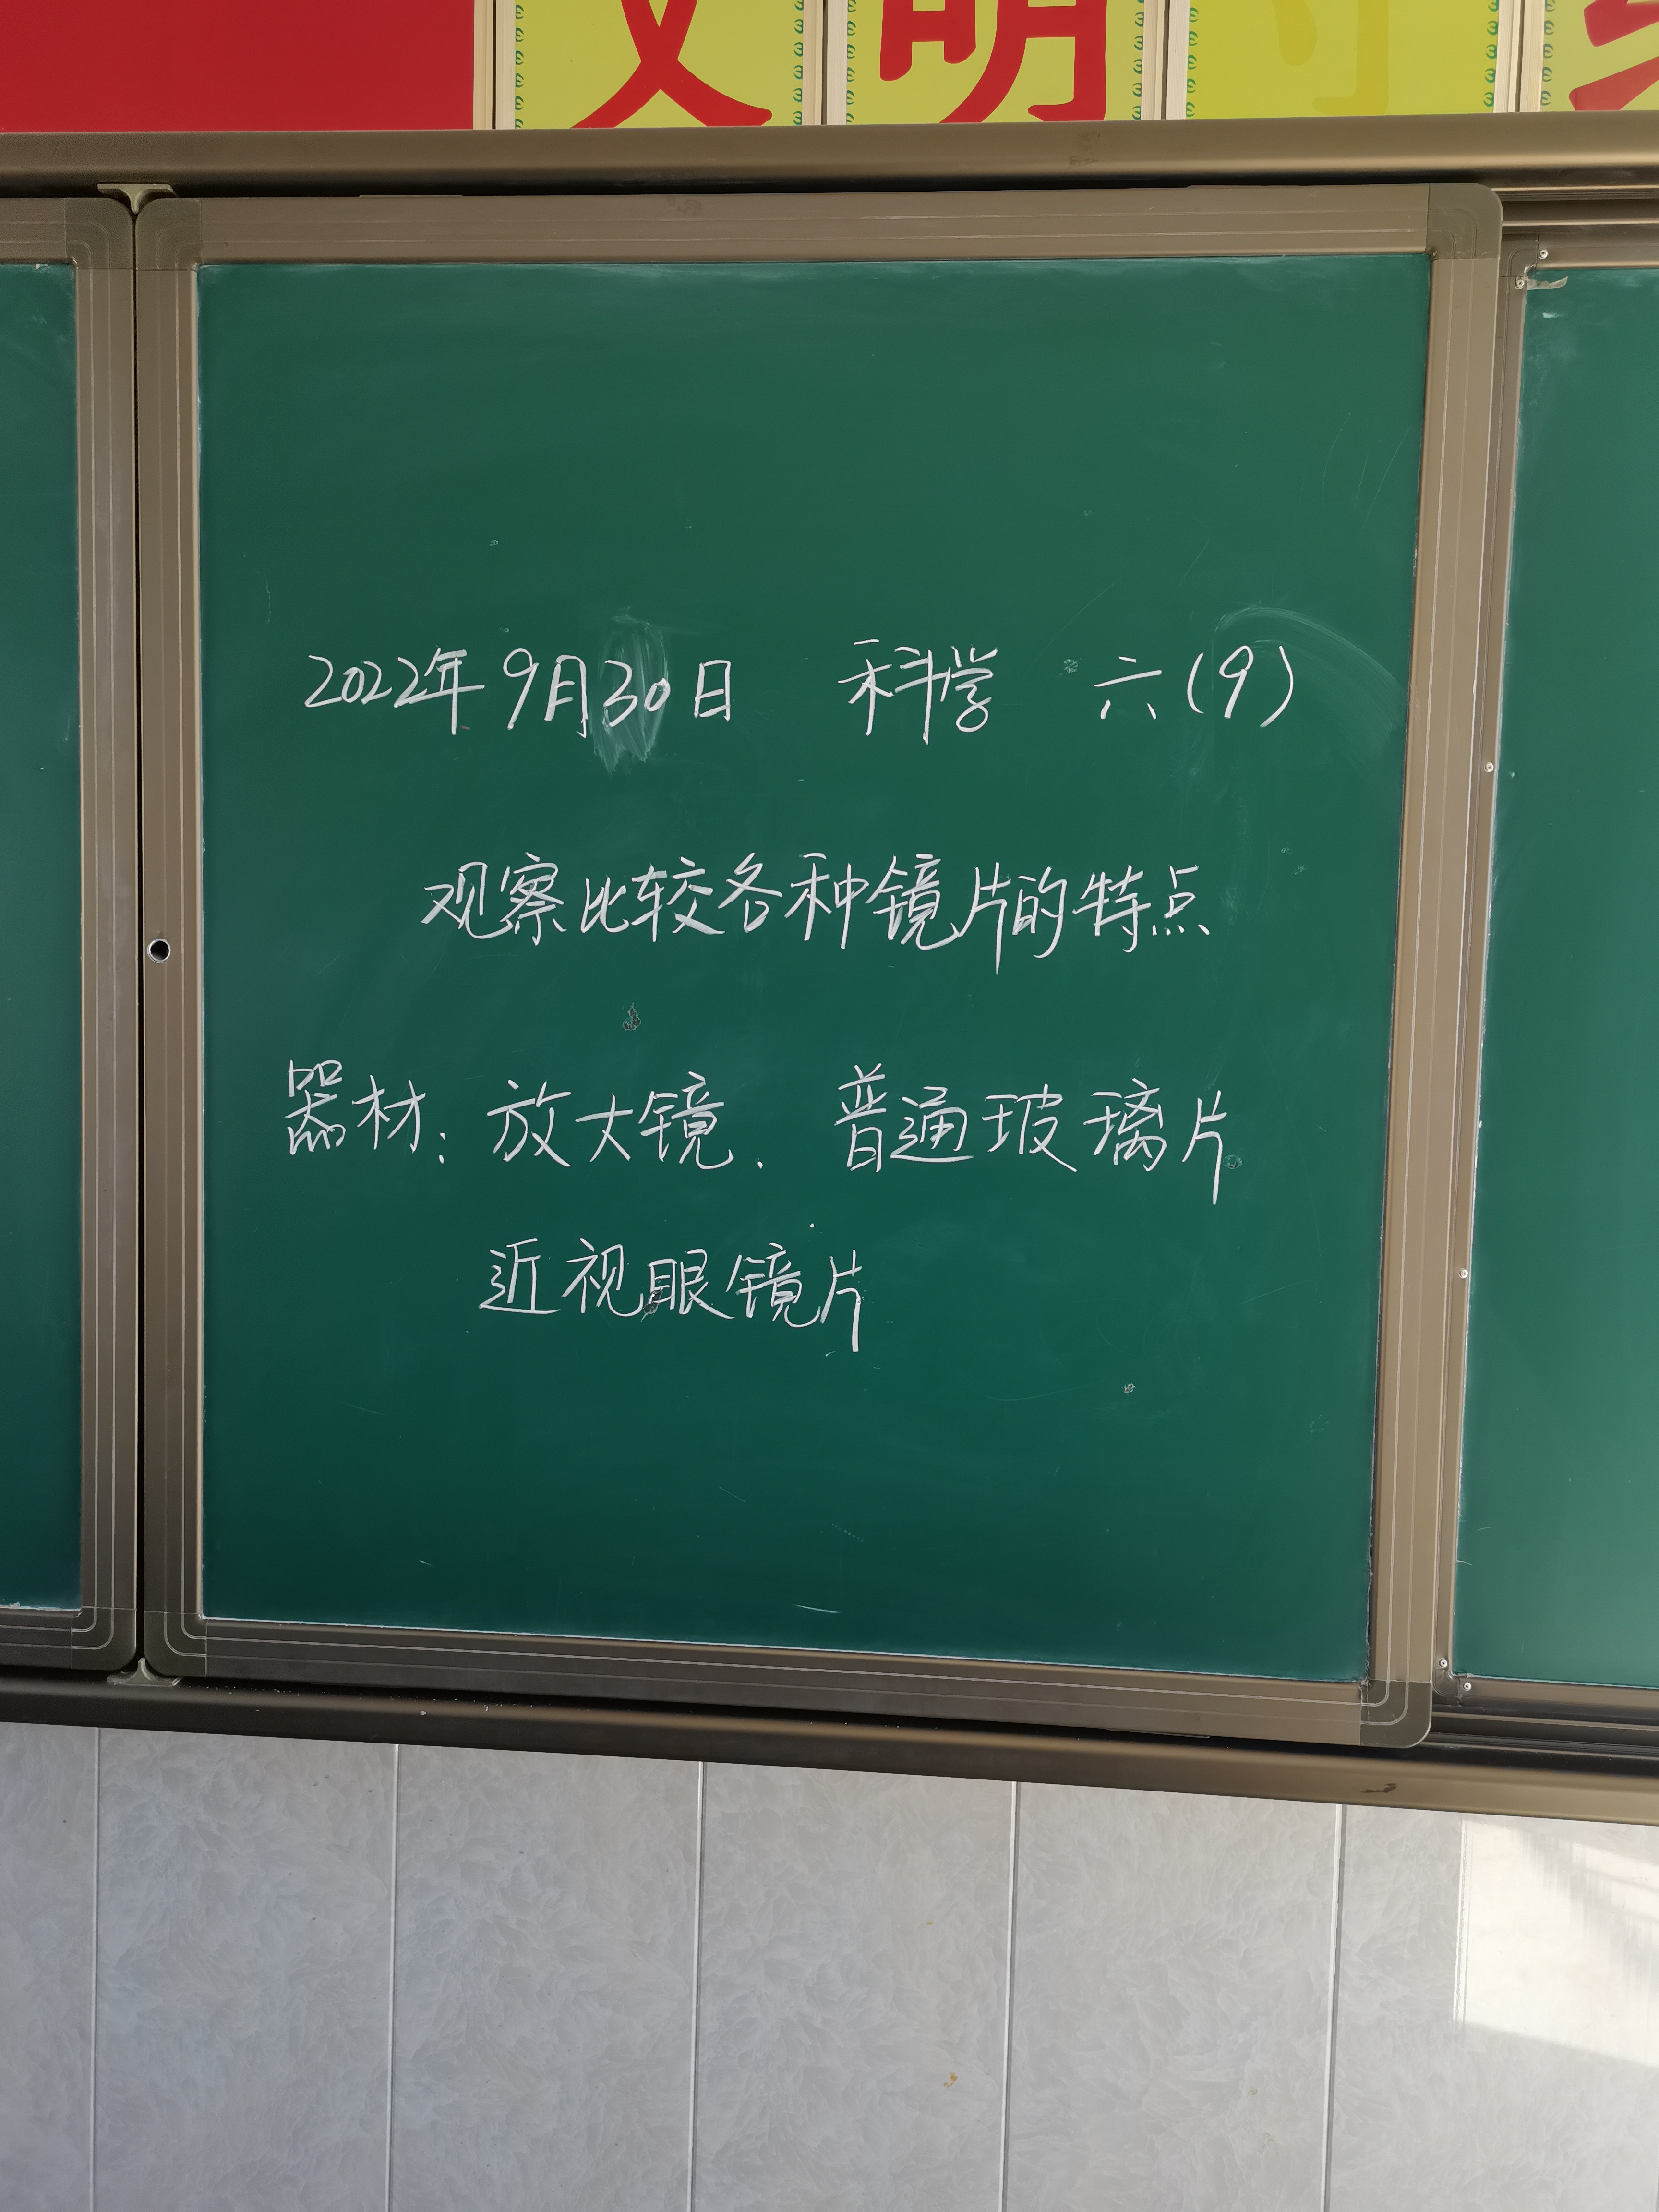 文明
2022年9月30日 科学 六(9)
观察比较各种镜片的特点
器材:放大镜. 普通玻璃片
近视眼镜片